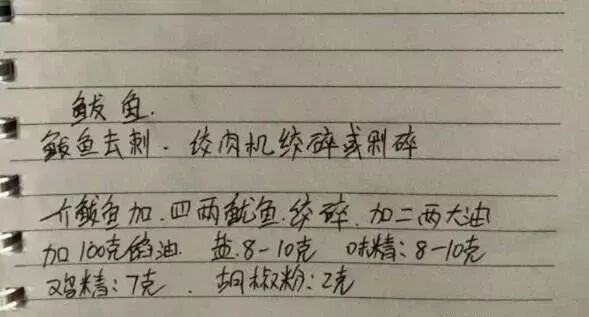 鲅鱼.
鲅鱼去刺. 绞肉机绞碎或剁碎
个鲅鱼加.四两鱿鱼.绞碎.加二两大油
加100克 油. 盐.8-10克 味精:8-10克
鸡精:7克. 胡椒粉:2克